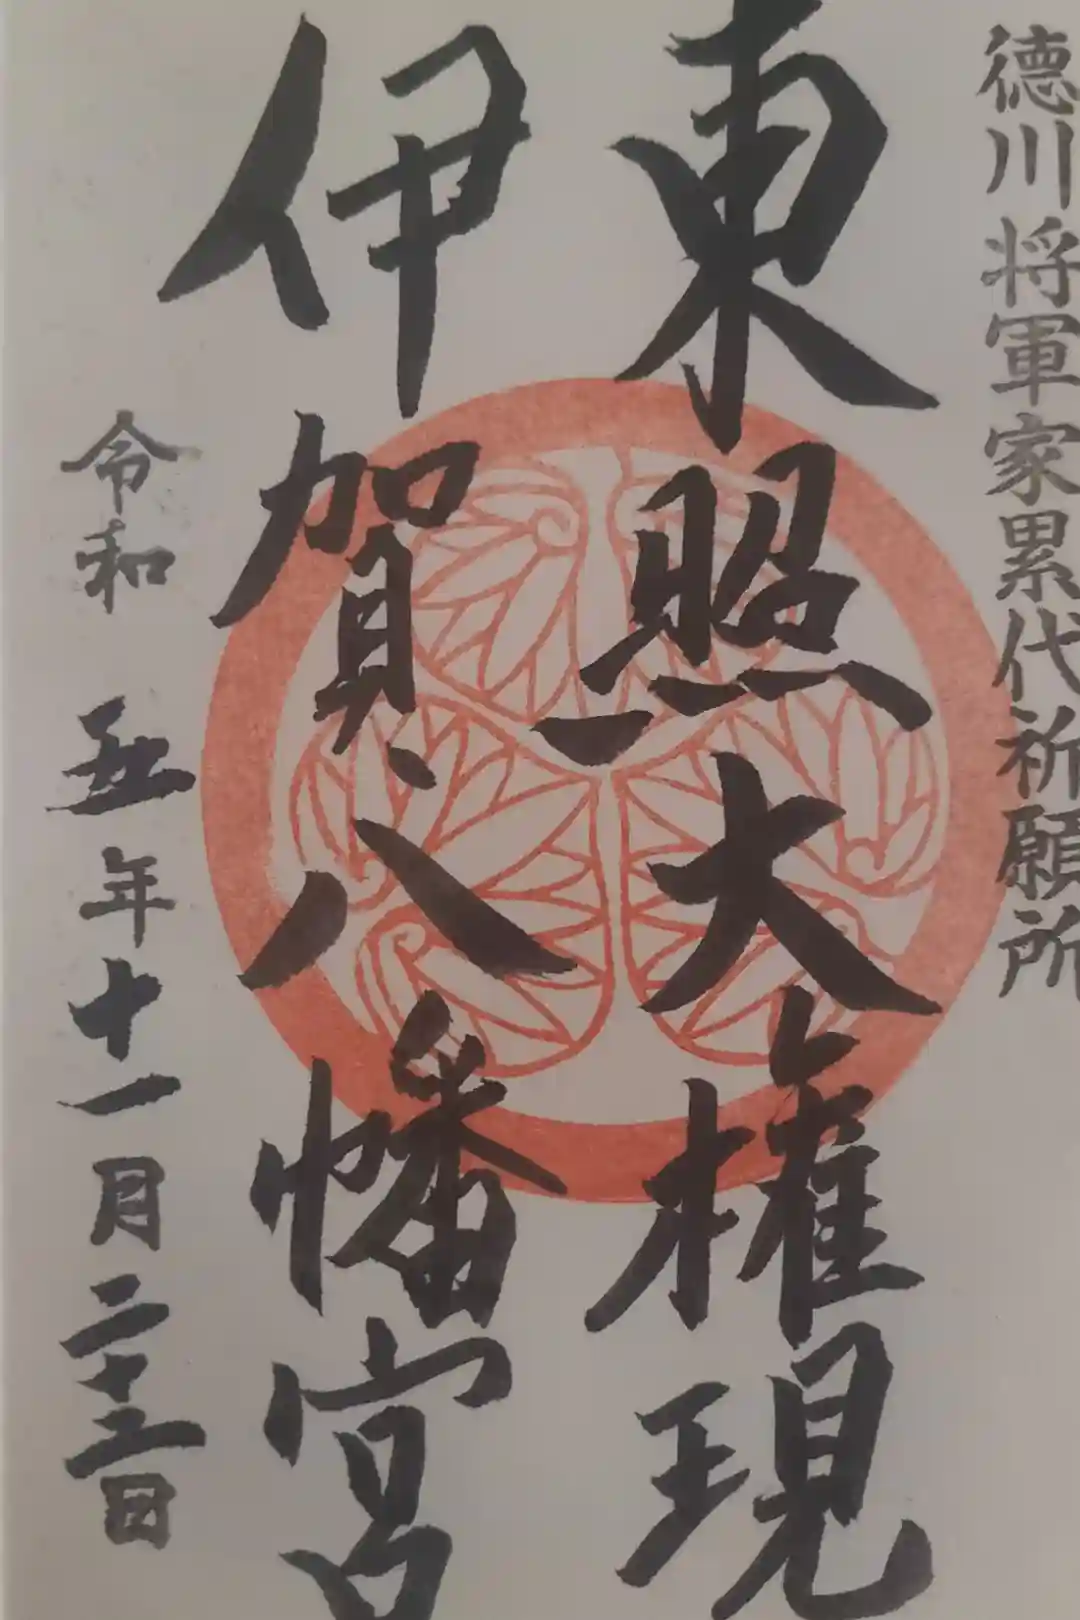 徳川将軍家累代祈願所
東照大権現
伊賀八幡宮
令和五年十一月二十三日